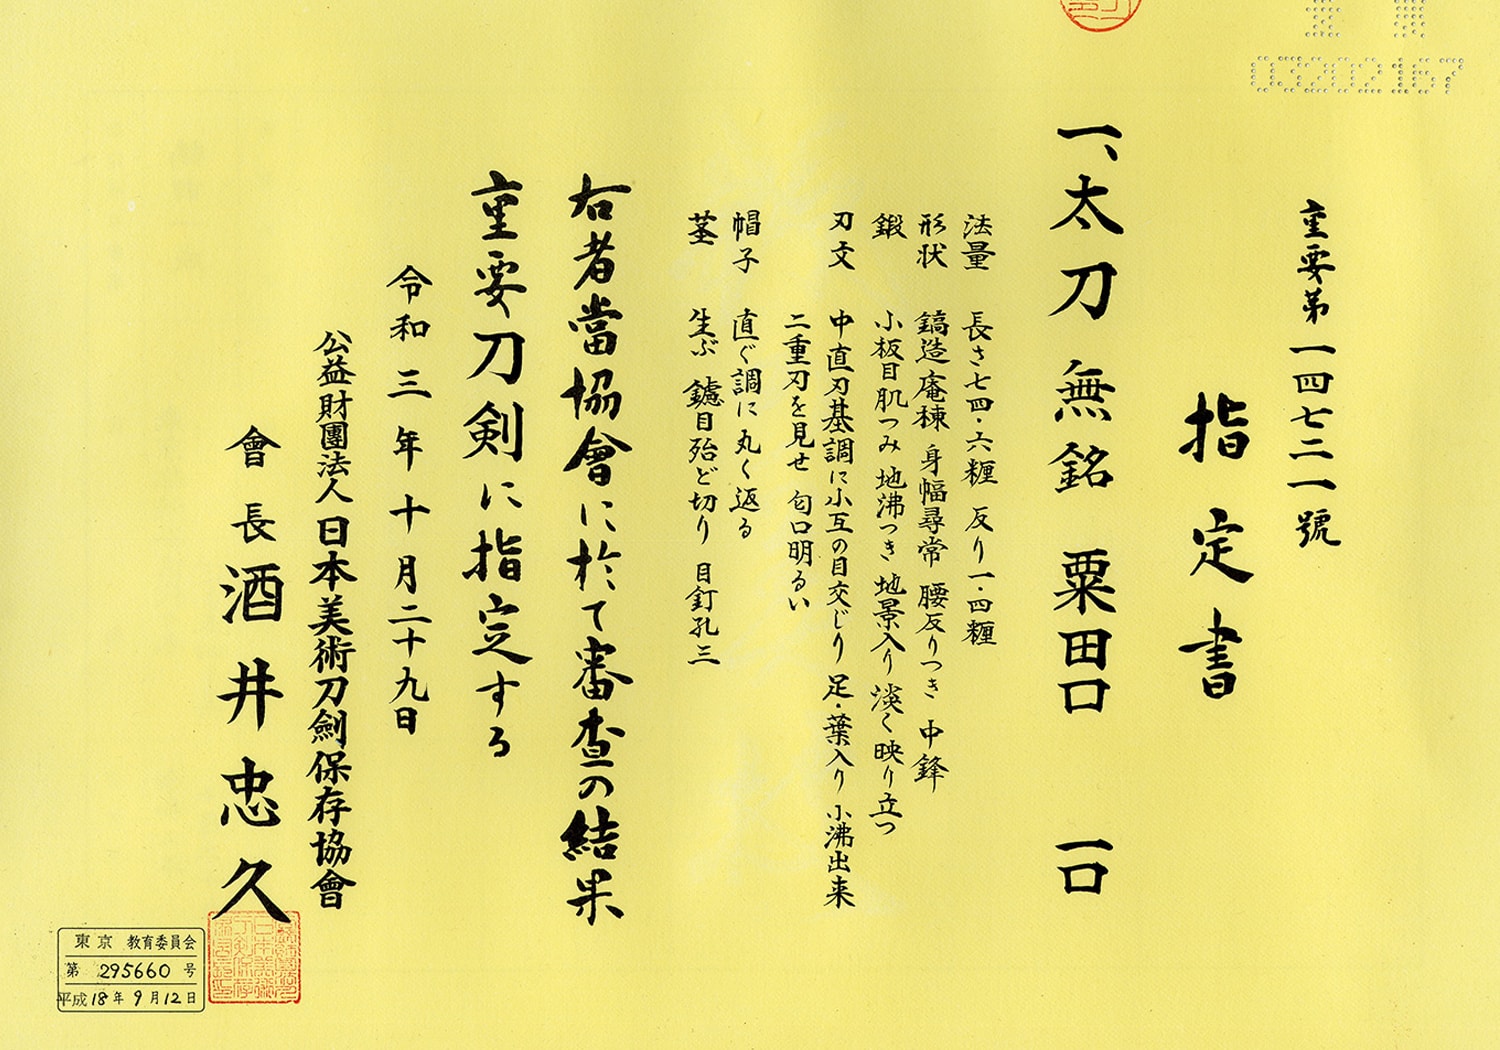 03202167
重要第一四七二一號
指定書
一、太刀 無銘 粟田口 一口
法量 長さ七四・六糎 反り一・四糎
形状 鎬造 庵棟 身幅尋常 腰反りつき 中鋒
鍛 小板目肌つみ 地沸つき 地景入り 淡く映り立つ
刃文 中直刃基調に小互の目交じり 足・葉入り 小沸出来
二重刃を見せ 匂口明るい
帽子 直ぐ調に丸く返る
茎 生ぶ 鑢目殆ど切り 目釘孔三
右者當協會に於て審査の結果
重要刀剣に指定する
令和三年十月二十九日
公益財團法人日本美術刀劍保存協會
會長 酒井忠久
東京 教育委員会
第 295660 号
平成18年9月12日